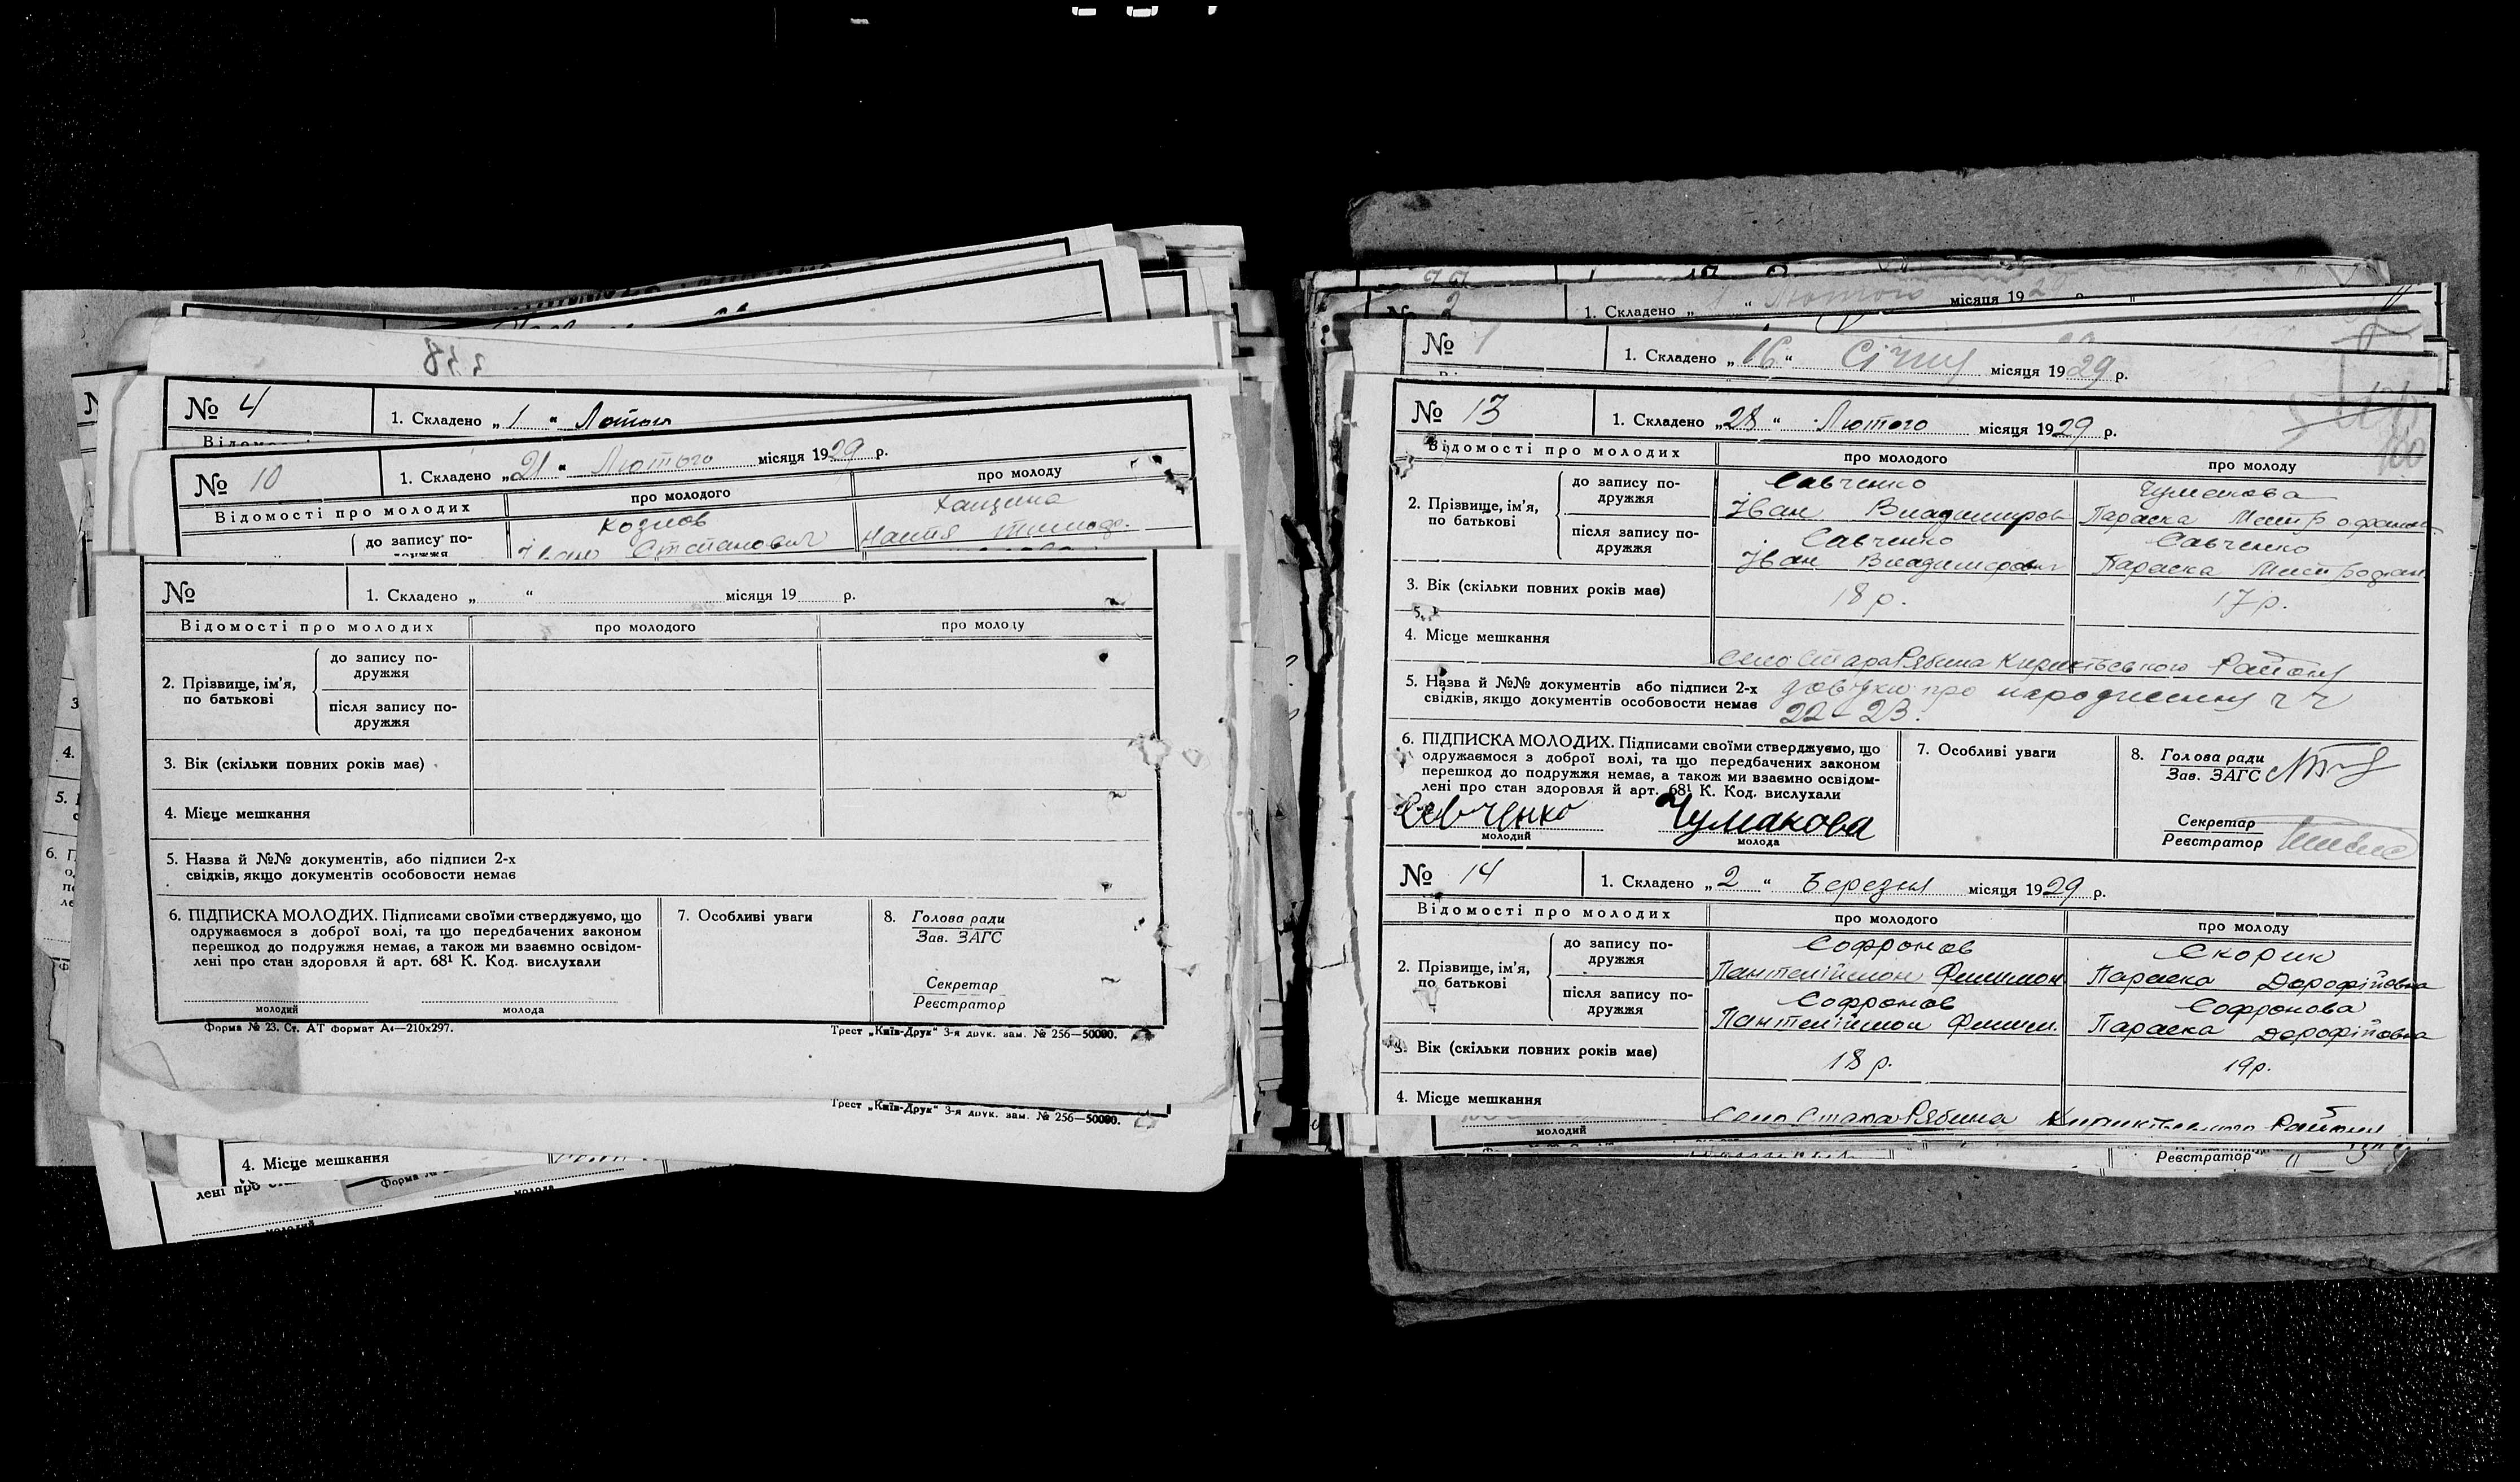 338
№ 4
1. Складено „ 1 “ Лютого
№ 10
1. Складено „ 21 “ Лютого місяця 1929 р.
Відомості про молодих
про молодого
про молоду
до запису по-
Козлов
Іван Степанович
Настя
№
1. Складено „ “ місяця 19 р.
Відомості про молодих
про молодого
про молоду
2. Прізвище, ім’я,
по батькові
до запису по-
дружжя
після запису по-
дружжя
3. Вік (скільки повних років має)
4. Місце мешкання
5. Назва й №№ документів, або підписи 2-х
свідків, якщо документів особовости немає
6. ПІДПИСКА МОЛОДИХ. Підписами своїми стверджуємо, що
одружаємося з доброї волі, та що передбачених законом
перешкод до подружжя немає, а також ми взаємно освідом-
лені про стан здоровля й арт. 68¹ К. Код. вислухали
молодий
молода
7. Особливі уваги
8. Голова ради
Зав. ЗАГС
Секретар
Реєстратор
Форма № 23. Ст. АТ формат А4—210х297.
Трест „Київ-Друк“ 3-я друк. зам. № 256—50000.
Трест „Київ-Друк“ 3-я друк. зам. № 256—50000.
4. Місце мешкання
лені про
молода
молодий
№ 2
1. Складено „ “ Лютого місяця 19
№ 1
1. Складено „ 16 “ Січня місяця 1929 р.
100
№ 13
1. Складено „ 28 “ Лютого місяця 1929 р.
Відомості про молодих
про молодого
про молоду
2. Прізвище, ім’я,
по батькові
до запису по-
дружжя
Савченко
Іван Владимиров
Чумакова
Параска Митрофанов
після запису по-
дружжя
Савченко
Іван Владимирович
Савченко
Параска
3. Вік (скільки повних років має)
18 р.
17 р.
4. Місце мешкання
Село Стара Рябина Кириківського Району
5. Назва й №№ документів або підписи 2-х
свідків, якщо документів особовости немає
довідки про народження ч ч
22 – 23.
6. ПІДПИСКА МОЛОДИХ. Підписами своїми стверджуємо, що
одружаємося з доброї волі, та що передбачених законом
перешкод до подружжя немає, а також ми взаємно освідом-
лені про стан здоровля й арт. 68¹ К. Код. вислухали
Савченко
молодий
Чумакова
молода
7. Особливі уваги
8. Голова ради
Зав. ЗАГС
Секретар
Реєстратор
№ 14
1. Складено „ 2 “ Березня місяця 1929 р.
Відомості про молодих
про молодого
про молоду
2. Прізвище, ім’я,
по батькові
до запису по-
дружжя
Софронов
Пантеліймон Филимон
Скорик
Параска Дорофіївна
після запису по-
дружжя
Софронов
Пантеліймон Филим.
Софронова
Параска Дорофіївна
3. Вік (скільки повних років має)
18 р.
19 р.
4. Місце мешкання
Село Стара Рябина Кириківського Району
молодий
Реєстратор